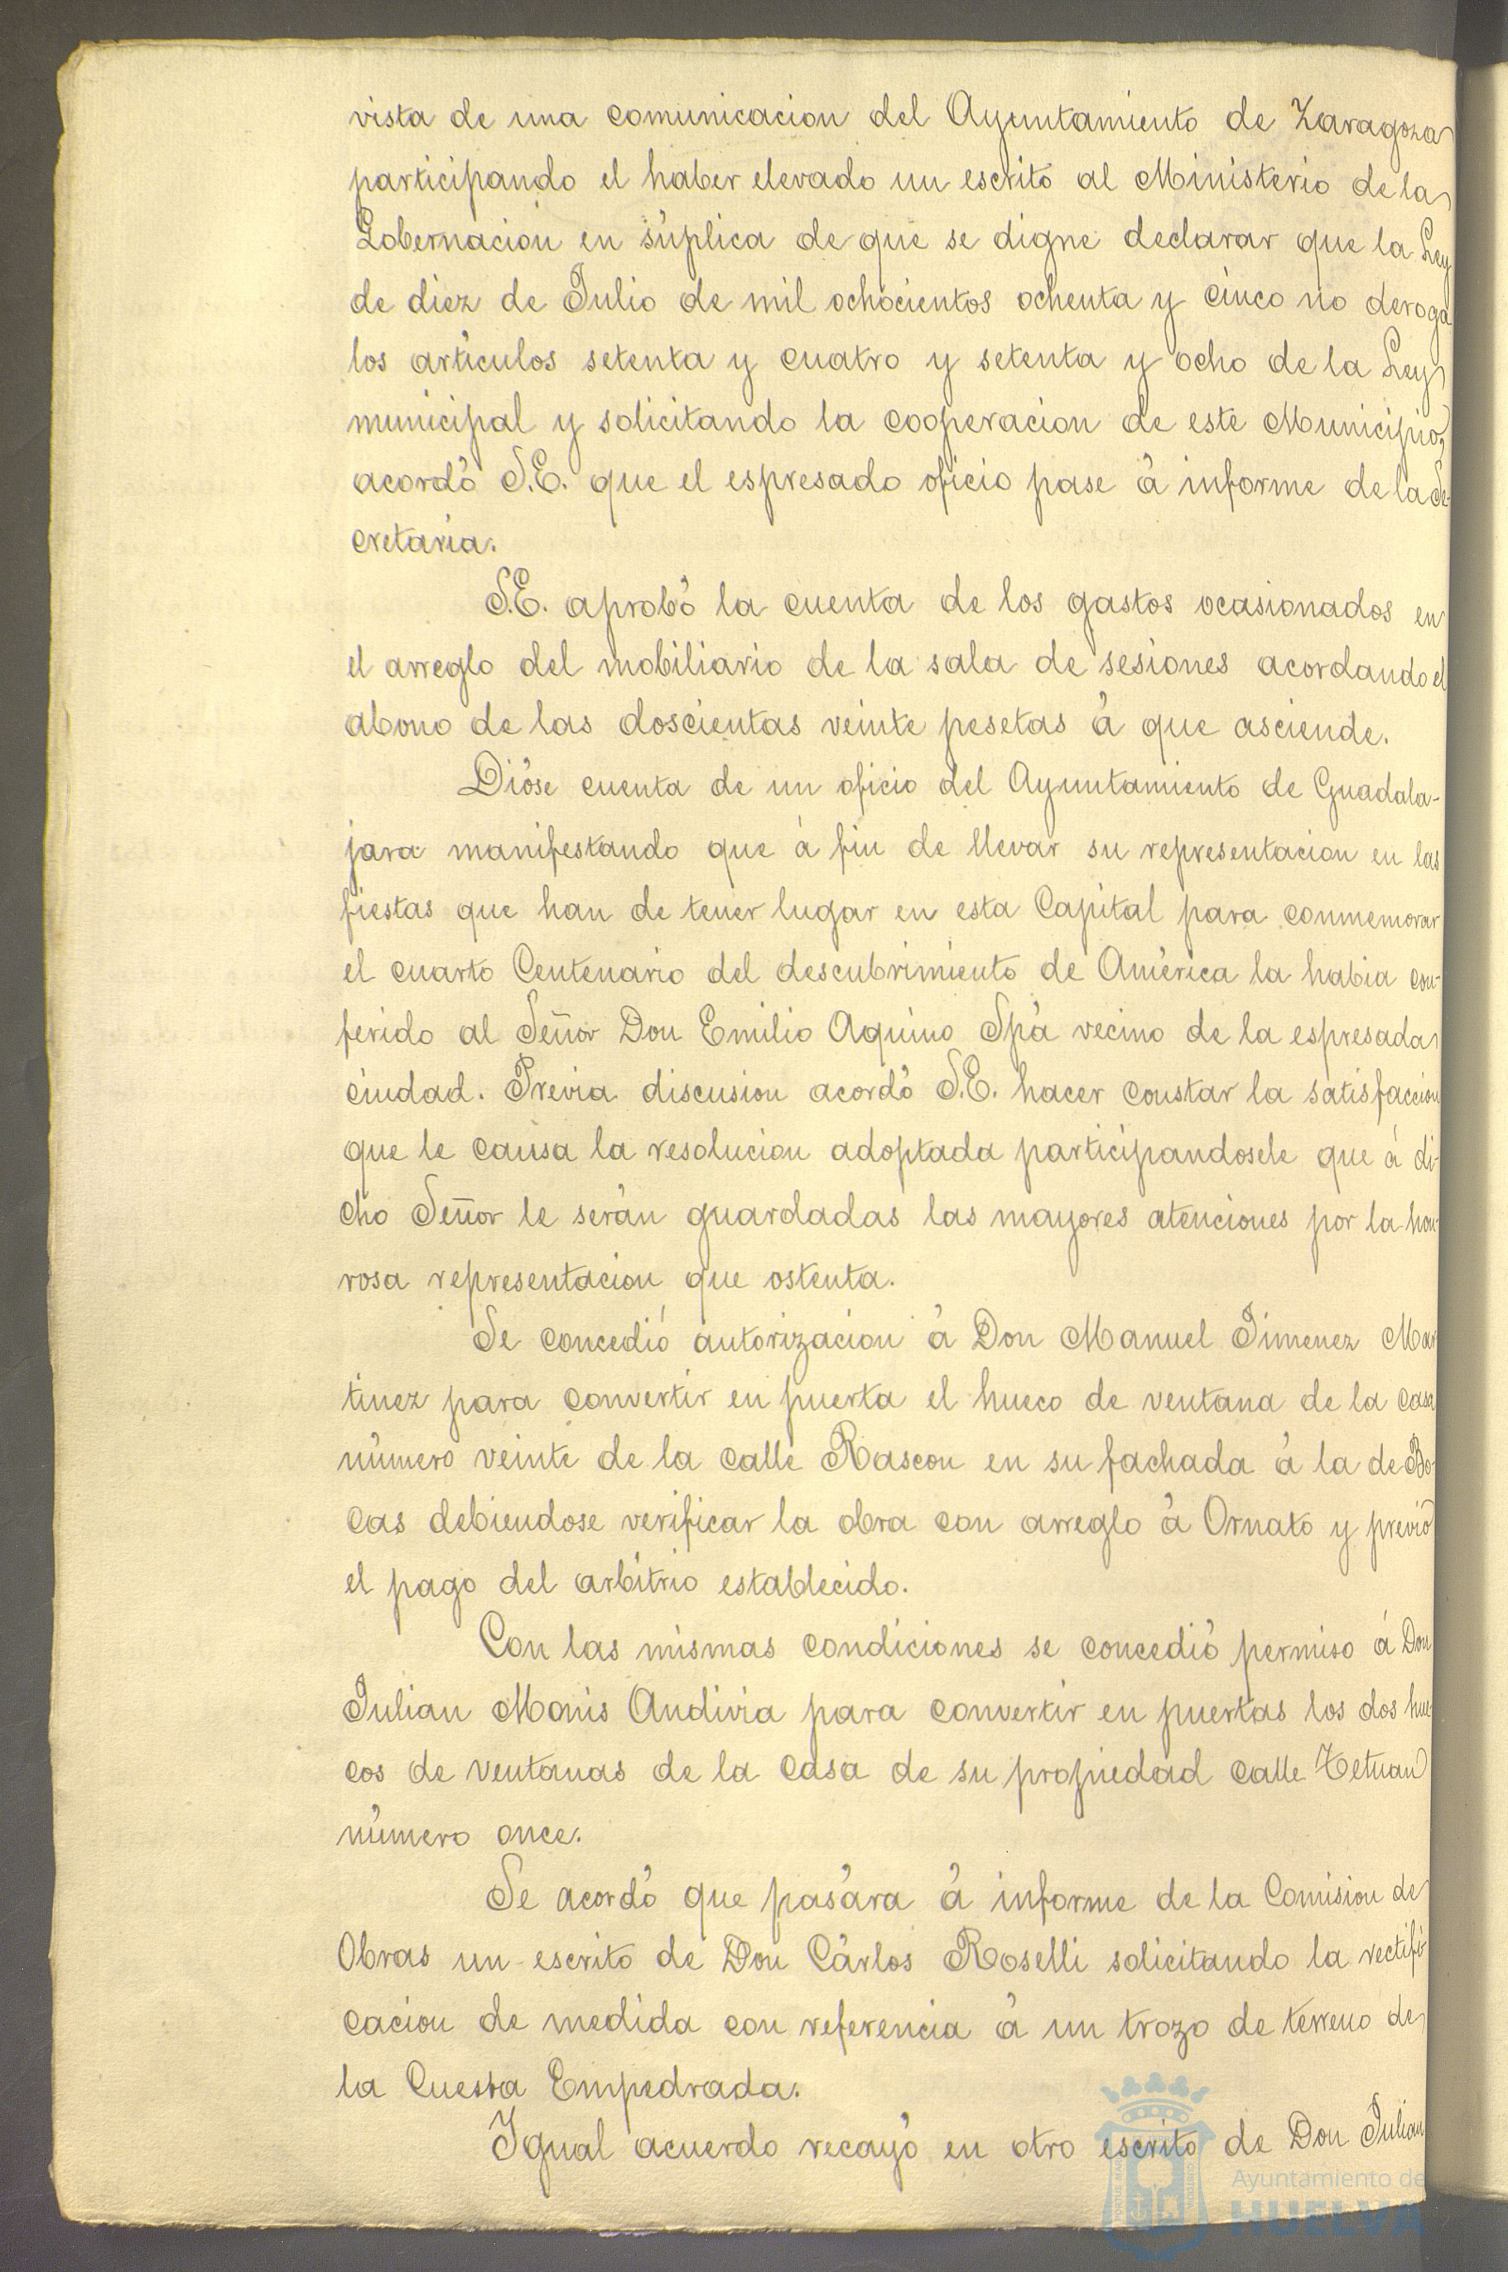 vista de una comunicacion del Ayuntamiento de Zaragoza
participando el haber elevado un escrito al Ministerio de la
Gobernacion en súplica de que se digne declarar que la Ley
de diez de Julio de mil ochocientos ochenta y cinco no deroga
los artículos setenta y cuatro y setenta y ocho de la Ley
municipal y solicitando la cooperacion de este Municipio,
acordó S.E. que el espresado oficio pase á informe de la Se-
cretaría.
S.E. aprobó la cuenta de los gastos ocasionados en
el arreglo del mobiliario de la sala de sesiones acordando el
abono de las doscientas veinte pesetas á que asciende.
Dióse cuenta de un oficio del Ayuntamiento de Guadala-
jara manifestando que á fin de llevar su representacion en las
fiestas que han de tener lugar en esta Capital para conmemorar
el cuarto Centenario del descubrimiento de América la habia con-
ferido al Señor Don Emilio Aquino Spá vecino de la espresada
ciudad. Previa discusion acordó S.E. hacer constar la satisfaccion
que le causa la resolucion adoptada participandosele que á di-
cho Señor le serán guardadas las mayores atenciones por la hon-
rosa representacion que ostenta.
Se concedió autorizacion á Don Manuel Jimenez Mar
tinez para convertir en puerta el hueco de ventana de la casa
número veinte de la calle Rascon en su fachada á la de Bo-
cas debiendose verificar la obra con arreglo á Ornato y previo
el pago del arbitrio establecido.
Con las mismas condiciones se concedió permiso á Don
Julian Monis Andivia para convertir en puertas los dos hue-
cos de ventanas de la casa de su propiedad calle Tetuan
número once.
Se acordó que pasára á informe de la Comision de
Obras un escrito de Don Cárlos Roselli solicitando la rectifi-
cacion de medida con referencia á un trozo de terreno de
la Cuesta Empedrada.
Igual acuerdo recayó en otro escrito de Don Julian
Ayuntamiento de
HUELVA